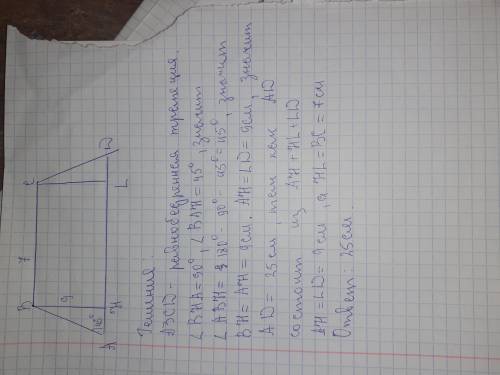 B
7
C
9
45°
A
H
L
D
Решение.
ABCD - равнобедренная трапеция.
∠BHA=90°, ∠BAH=45°, значит
∠ABH= 180° - 90° - 45°=45°, значит
BH= AH= 9см. AH=LD=9см, значит
AD= 25см, так как AD
состоит из AH+HL+LD
AH=LD=9см, а HL=BC=7см
Ответ: 25см.